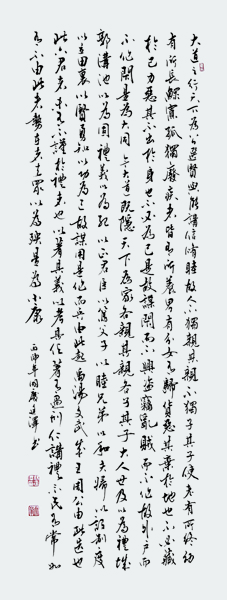 大道之行天下為公選賢與能講信脩睦故人不獨親其親不獨子其子使老有所終幼
有所長鰥寡孤獨廢疾者皆有所養男有分女有歸貨惡其棄於地也不必藏
於己力惡其不出於身也不必為己是故謀閉而不興盜竊亂賊而不作故外戶而
不閉是為大同今大道既隱天下為家各親其親各子其子大人世及以為禮城
郭溝池以為固禮義以為紀以正君臣以篤父子以睦兄弟以和夫婦以設制度
以立田裏以賢勇知以功為己故謀用是作而兵由此起禹湯文武成王周公由此選也
此六君者未有不謹於禮者也以著其義以考其信著有過刑仁講禮示民有常如
有不由此者埶者去眾以為殃是為小康 年國慶 書